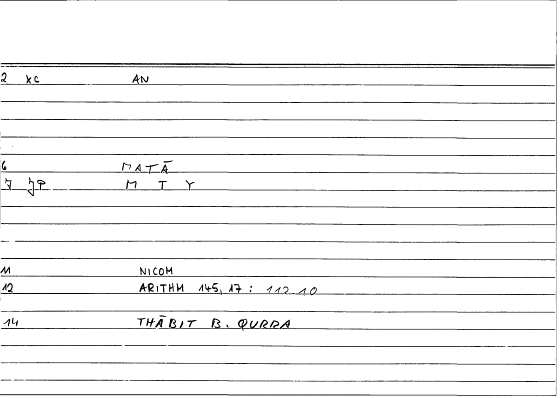 2 XC AN
6 MATĀ
7 M T Y
11 NICOM
12 ARITHM 145, 17 : 112 10
14 THĀBIT B. QURRA